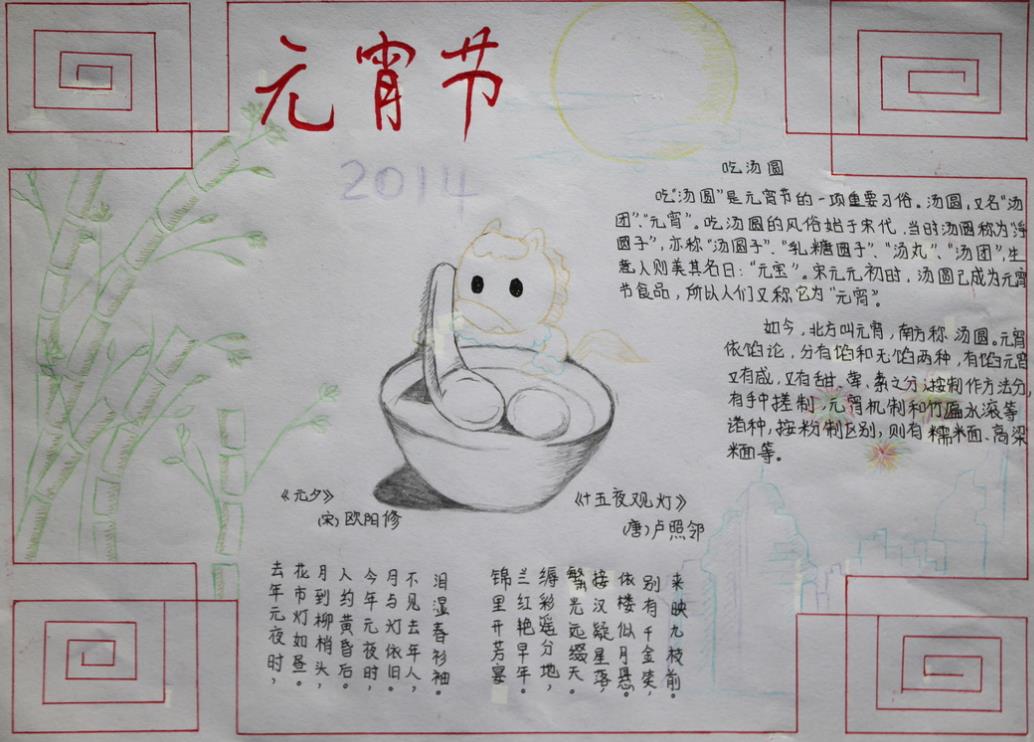 元宵节
2014
吃汤圆
吃“汤圆”是元宵节的一项重要习俗。汤圆，又名“汤
团”、“元宵”。吃汤圆的风俗始于宋代，当时汤圆称为“浮
圆子”，亦称“汤圆子”、“乳糖圆子”、“汤丸”、“汤团”，生
意人则美其名曰：“元宝”。宋元元初时，汤圆已成为元宵
节食品，所以人们又称它为“元宵”。
如今，北方叫元宵，南方称汤圆。元宵
依馅论，分有馅和无馅两种，有馅元宵
又有咸，又有甜、荤、素之分；按制作方法分
有手中搓制，元宵机制和竹匾水滚等
诸种，按粉制区别，则有糯米面、高梁
米面等。
《元夕》
(宋)欧阳修
去年元夜时，
花市灯如昼。
月到柳梢头，
人约黄昏后。
今年元夜时，
月与灯依旧。
不见去年人，
泪湿春衫袖。
《十五夜观灯》
(唐)卢照邻
锦里开芳宴
兰红艳早年。
缛彩遥分地，
繁光远缀天。
接汉疑星落，
依楼似月悬。
别有千金笑，
来映九枝前。